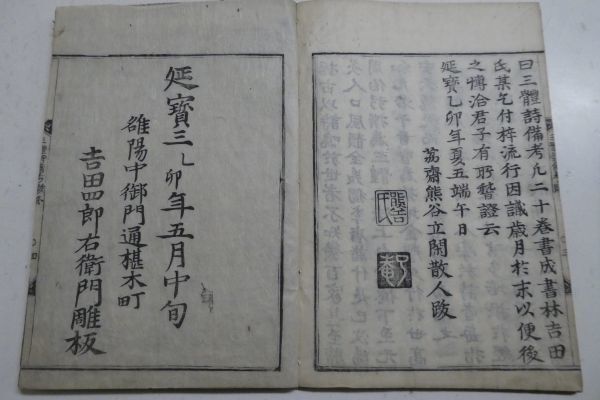 曰三體詩備考凡二十巻書成書林吉田
氏某乞付梓流行因識歳月於末以便後
之博洽君子有所稽證云
延寳乙卯年夏五端午日
茘齋熊谷立閑散人跋
延寳三乙卯年五月中旬
雒陽中御門通椹木町
吉田四郎右衛門雕板